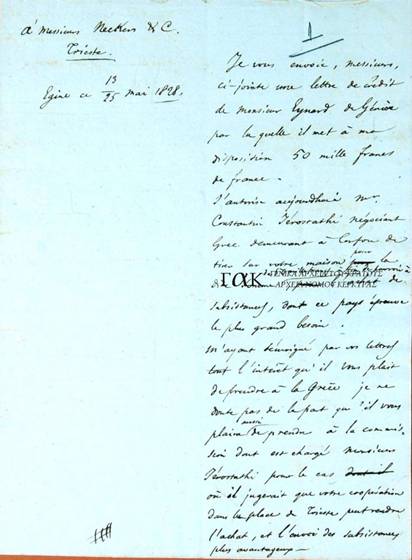 à Messieurs Neckers & C.
Trieste.
Egine ce 13/25 mai 1828.
1
Je vous envoie, messieurs,
ci-jointe une lettre de crédit
de monsieur Eynard de Génève
par la quelle il met à ma
disposition 50 mille francs
de france.
J'autorise aujourdhui Mr.
Constantin Jérostathi négociant
Grec demeurant à Corfou de
tirer sur votre maison pour la
ΓΑΚ
ΓΕΝΙΚΑ ΑΡΧΕΙΑ ΤΟΥ ΚΡΑΤΟΥΣ
ΑΡΧΕΙΑ ΝΟΜΟΥ ΚΕΡΚΥΡΑΣ
de
subsistances, dont ce pays éprouve
le plus grand besoin.
m'ayant témoigné par vos lettres
tout l'intérêt qu'il vous plait
de prendre à la Grèce je ne
doute pas de la part qu'il vous
plaira aussi de prendre à la commis-
sion dont est chargé monsieur
Jérostathi pour le cas dont il
où il jugerait que votre coopération
dans la place de Trieste peut rendre
l'achat, et l'envoi des subsistances
plus avantageux —